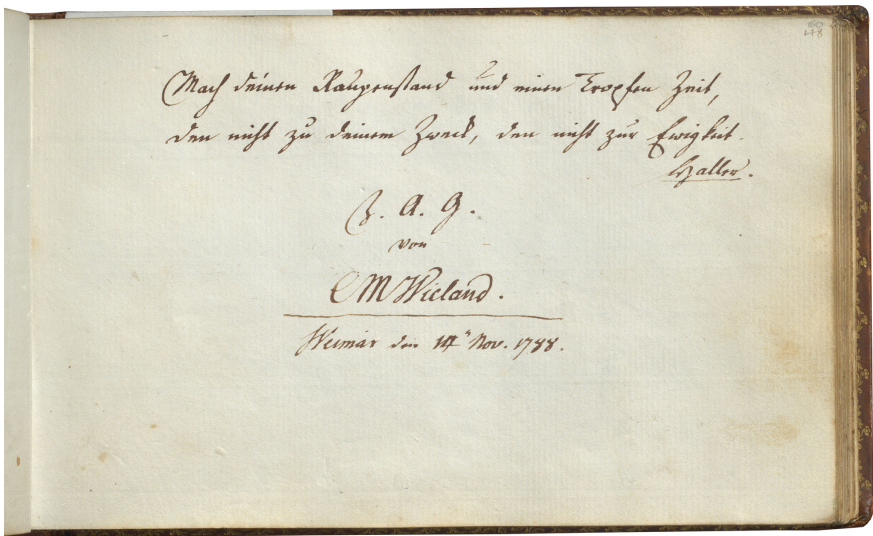 Mach deinen Raupenstand und einen Tropfen Zeit,
den nicht zu deinem Zweck, den nicht zur Ewigkeit.
Haller.
Z. A. G.
von
CMWieland.
Weimar den 14" Nov. 1788.